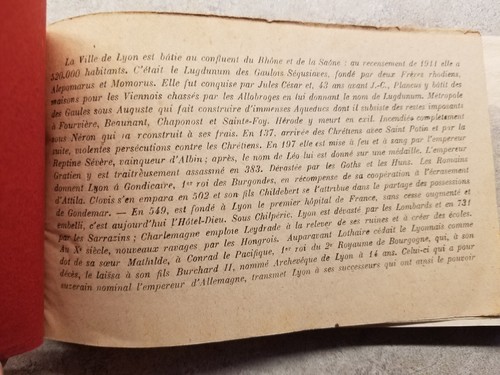 La Ville de Lyon est bâtie au confluent du Rhône et de la Saône : au recensement de 1911 elle a
520.000 habitants. C'était le Lugdunum des Gaulois Séqusivnes, fondé par deux Frères rhodiens,
Alepomarus et Momorus. Elle fut conquise par Jules César et, 43 ans avant J.-C., Plancus y bâtit des
maisons pour les Viennois chassés par les Allobroges en lui donnant le nom de Lugdunum. Métropole
des Gaules sous Auguste qui fait construire d'immenses Aqueducs dont il subsiste des restes imposants
à Fourvière, Beaunant, Chaponost et Sainte-Foy. Hérode y meurt en exil. Incendiée complètement
sous Néron qui la reconstruit à ses frais. En 137, arrivée des Chrétiens avec Saint Potin et par la
suite, violentes persécutions contre les Chrétiens. En 197 elle est mise à feu et à sang par l'empereur
Septine Sévère, vainqueur d'Albin ; après, le nom de Léo lui est donné sur une médaille. L'empereur
Gratien y est traîtreusement assassiné en 383. Dévastée par les Goths et les Huns. Les Romains
donnent Lyon à Gondicaire, 1er roi des Burgondes, en récompense de sa coopération à l'écrasement
d'Attila. Clovis s'en empara en 502 et son fils Childebert se l'attribue dans le partage des possessions
de Gondemar. — En 549, est fondé à Lyon le premier hôpital de France, sans cesse augmenté et
embelli, c'est aujourd'hui l'Hôtel-Dieu. Sous Chilpéric. Lyon est dévasté par les Lombards et en 731
par les Sarrazins ; Charlemagne emploie Leydrade à la relever de ses ruines et à créer des écoles.
Au Xe siècle, nouveaux ravages par les Hongrois. Auparavant Lothaire cédait le Lyonnais comme
dot de sa sœur Mathilde, à Conrad le Pacifique, 1er roi du 2e Royaume de Bourgogne, qui, à son
décès, le laissa à son fils Burchard II, nommé Archevêque de Lyon à 14 ans. Celui-ci qui a pour
suzerain nominal l'empereur d'Allemagne, transmet Lyon à ses successeurs qui ont ainsi le pouvoir